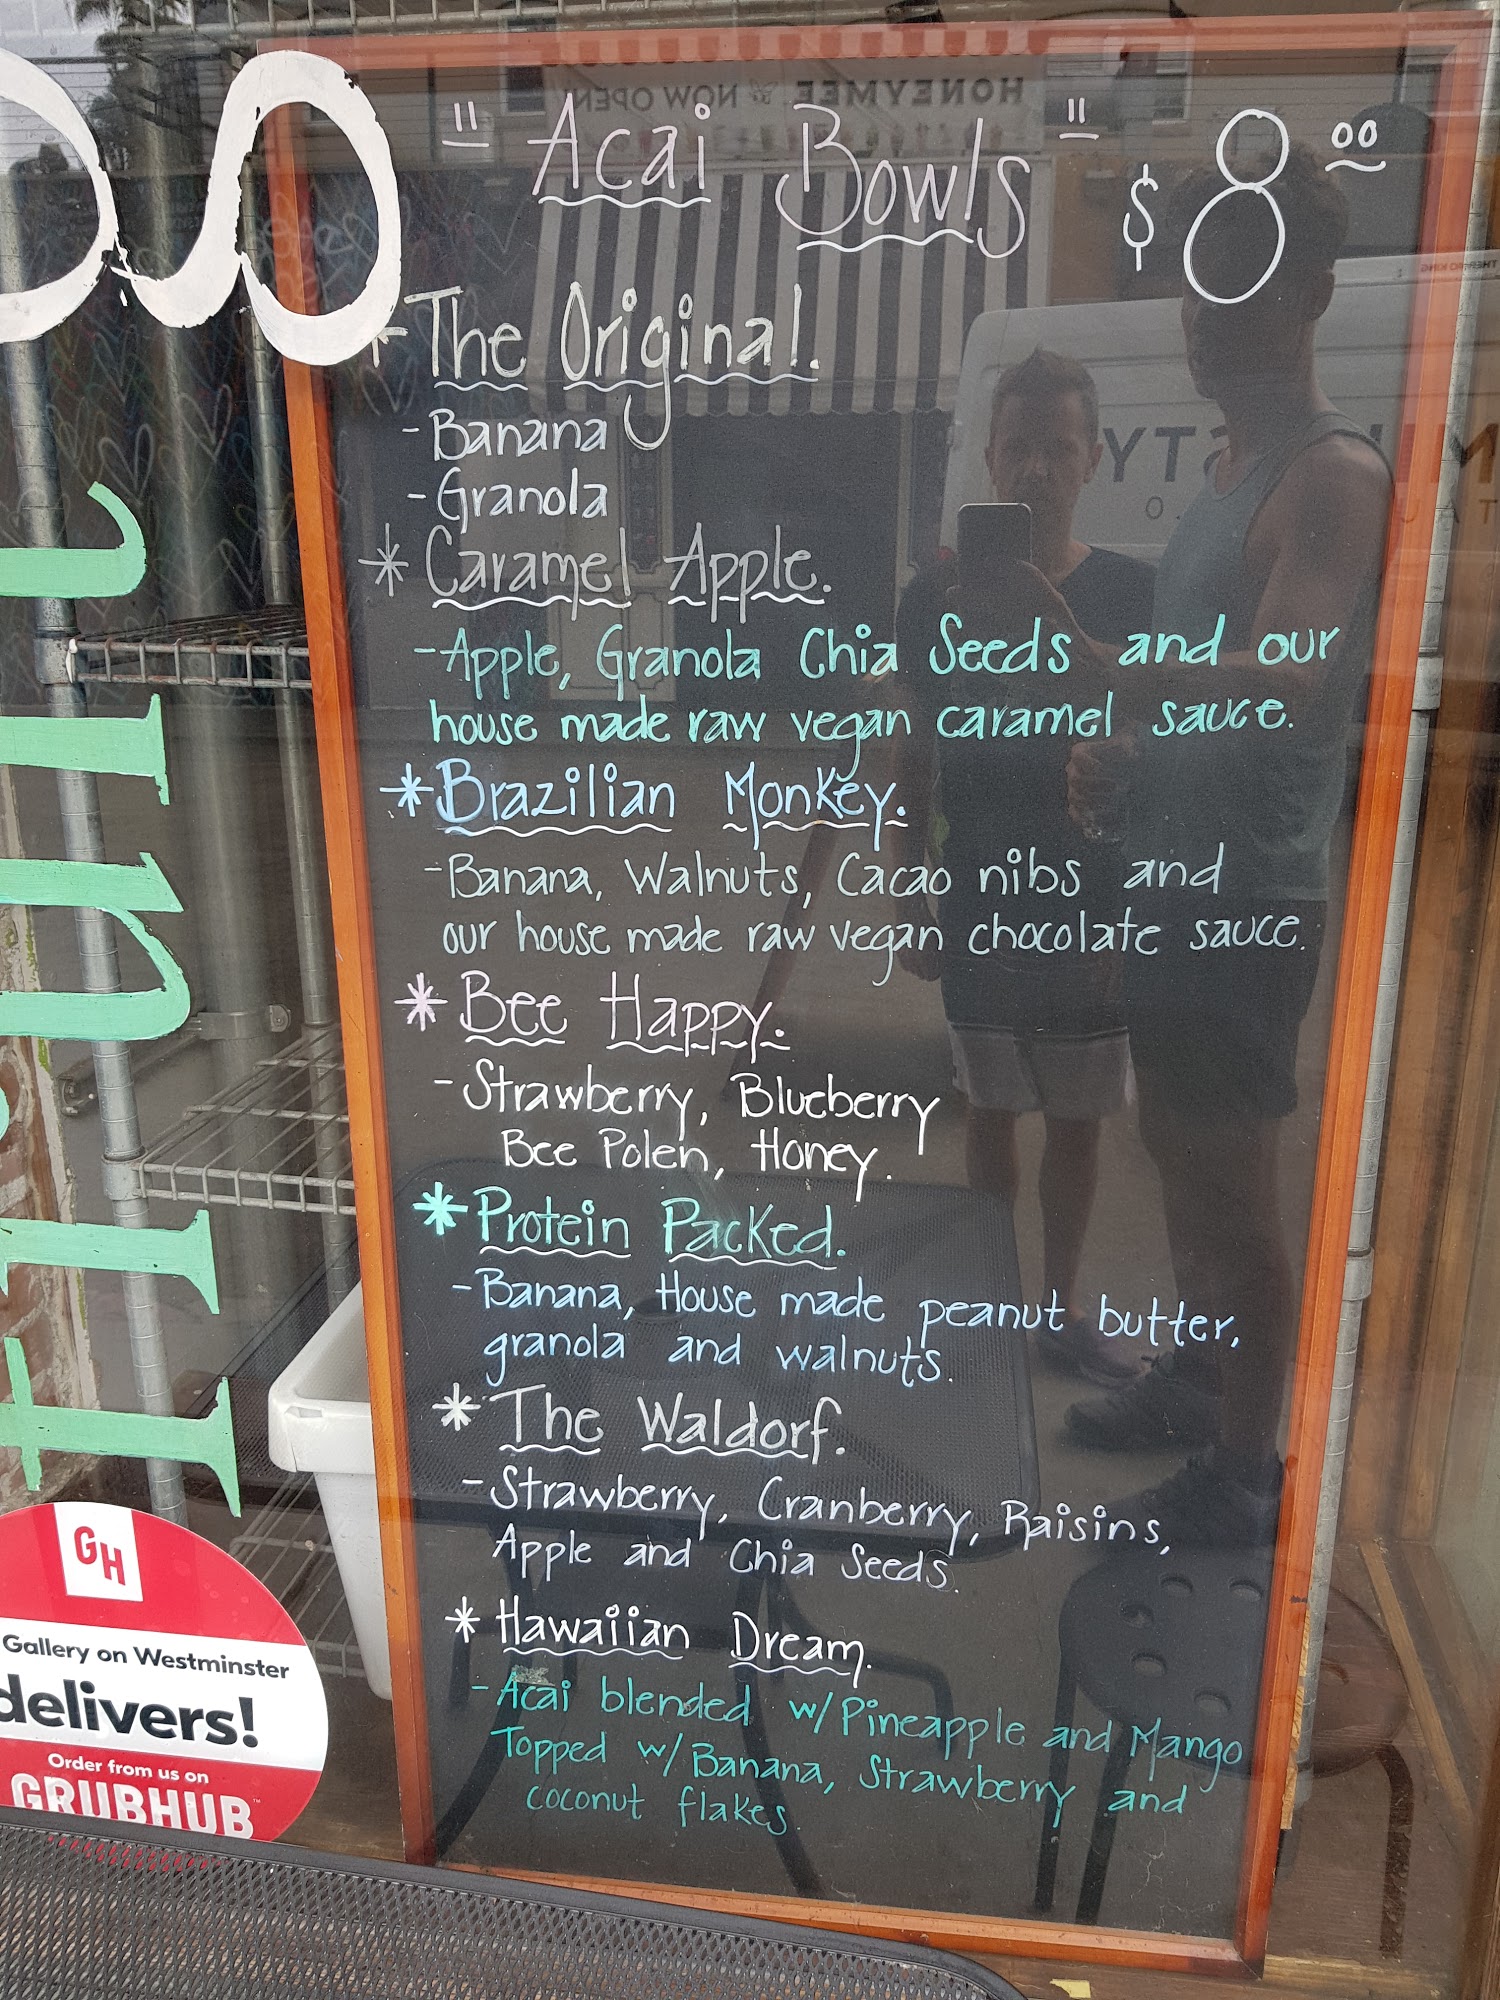 "Acai Bowls" $8.00
* The Original.
- Banana
- Granola
* Caramel Apple.
- Apple, Granola Chia Seeds and our
house made raw vegan caramel sauce.
* Brazilian Monkey.
- Banana, Walnuts, Cacao nibs and
our house made raw vegan chocolate sauce.
* Bee Happy.
- Strawberry, Blueberry
Bee Polen, Honey.
* Protein Packed.
- Banana, House made peanut butter,
granola and walnuts.
* The Waldorf.
- Strawberry, Cranberry, Raisins,
Apple and Chia Seeds.
* Hawaiian Dream.
- Acai blended w/Pineapple and Mango
Topped w/Banana, Strawberry and
coconut flakes.
GH
Gallery on Westminster
delivers!
Order from us on
GRUBHUB™
HONEYMEE NOW OPEN